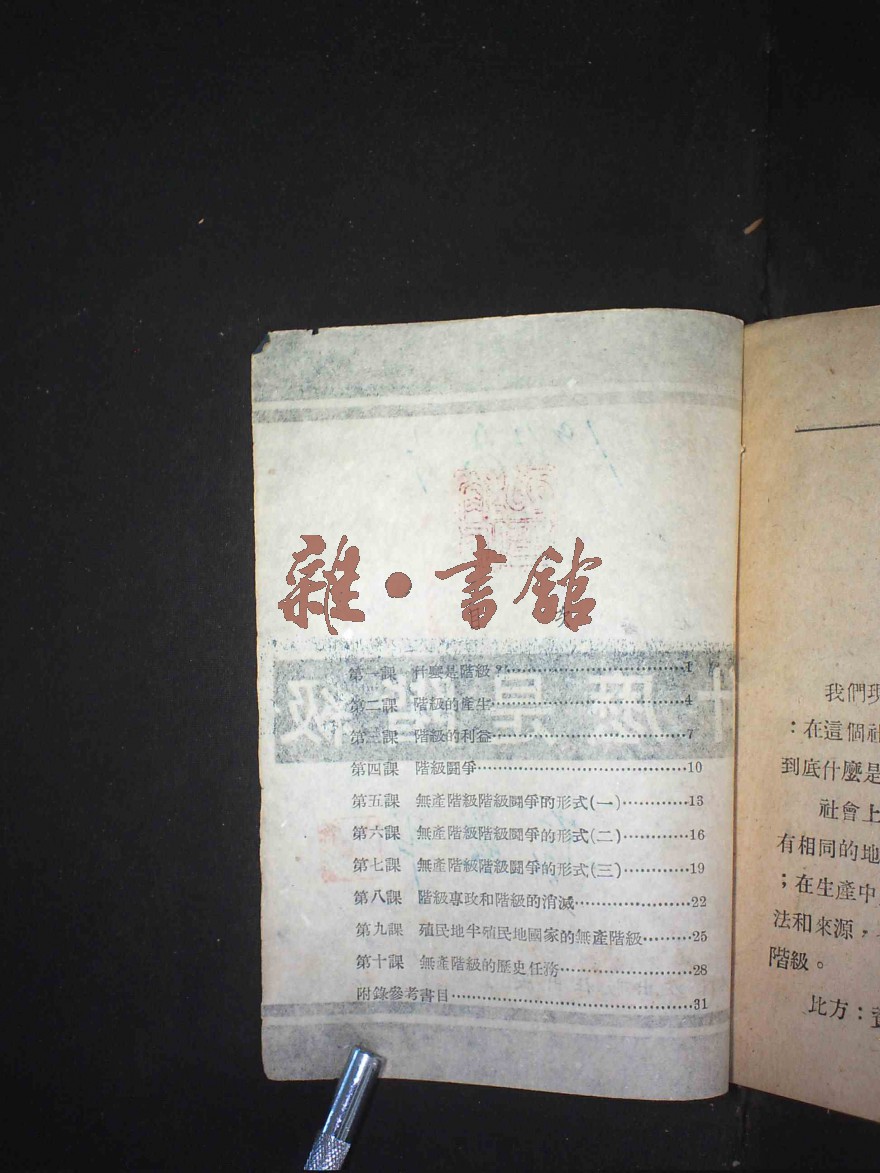 雜·書館
目 次
第一課 什麼是階級?…………1
第二課 階級的產生…………4
第三課 階級的利益…………7
第四課 階級鬪爭…………10
第五課 無產階級階級鬪爭的形式(一)…………13
第六課 無產階級階級鬪爭的形式(二)…………16
第七課 無產階級階級鬪爭的形式(三)…………19
第八課 階級專政和階級的消滅…………22
第九課 殖民地半殖民地國家的無產階級…………25
第十課 無產階級的歷史任務…………28
附錄參考書目…………31
什麼是階級
我們現
:在這個社
到底什麼是
社會上
有相同的地
;在生產中
法和來源,
階級。
比方: